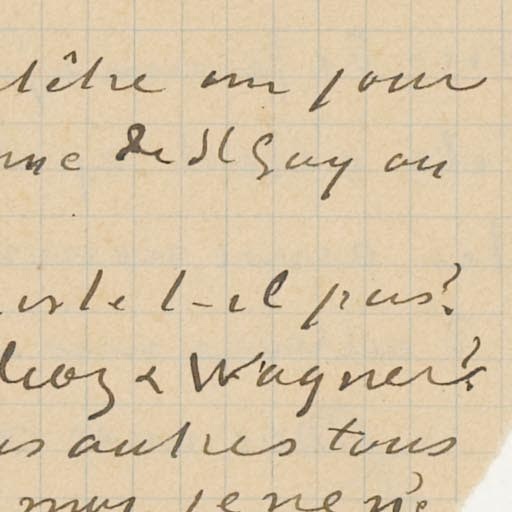 têtre un jour
me de St Guy ou
iste t-il pas?
lioz & Wagner?
us autres tous
moi je ne